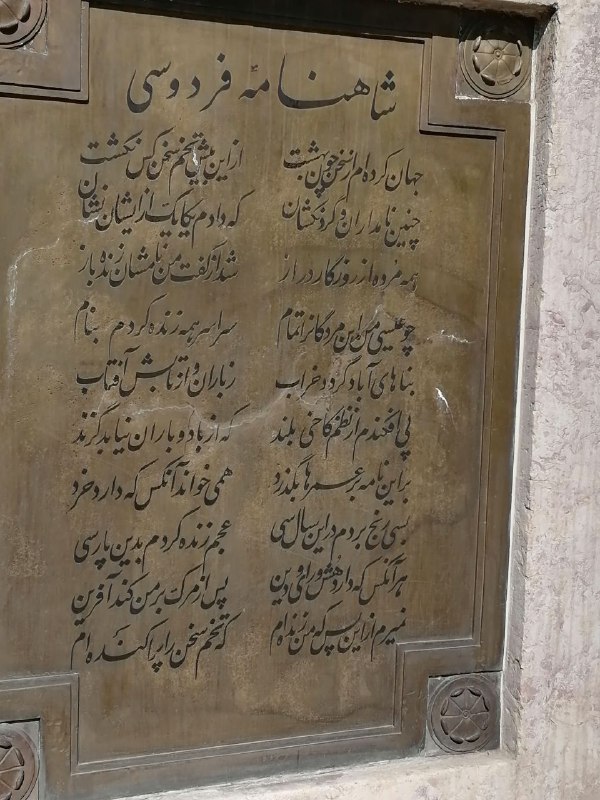 شاهنامهٔ فردوسی
جهان کرده‌ام از سخن چون بهشت از این بیش تخم سخن کس نکشت
چنین نامداران و گردنکشان که دادم یکایک از ایشان نشان
همه مرده از روزگار دراز شد از گفت من نامشان زنده باز
چو عیسی من این مردگانرا تمام سراسر همه زنده کردم بنام
بناهای آباد گردد خراب ز باران و از تابش آفتاب
پی افکندم از نظم کاخی بلند که از باد و باران نیابد گزند
بر این نامه بر عمرها بگذرد همی خواند آنکس که دارد خرد
بسی رنج بردم در این سال سی عجم زنده کردم بدین پارسی
هر آنکس که دارد هش و رای و دین پس از مرگ بر من کند آفرین
نمیرم از این پس که من زنده‌ام که تخم سخن را پراکنده‌ام